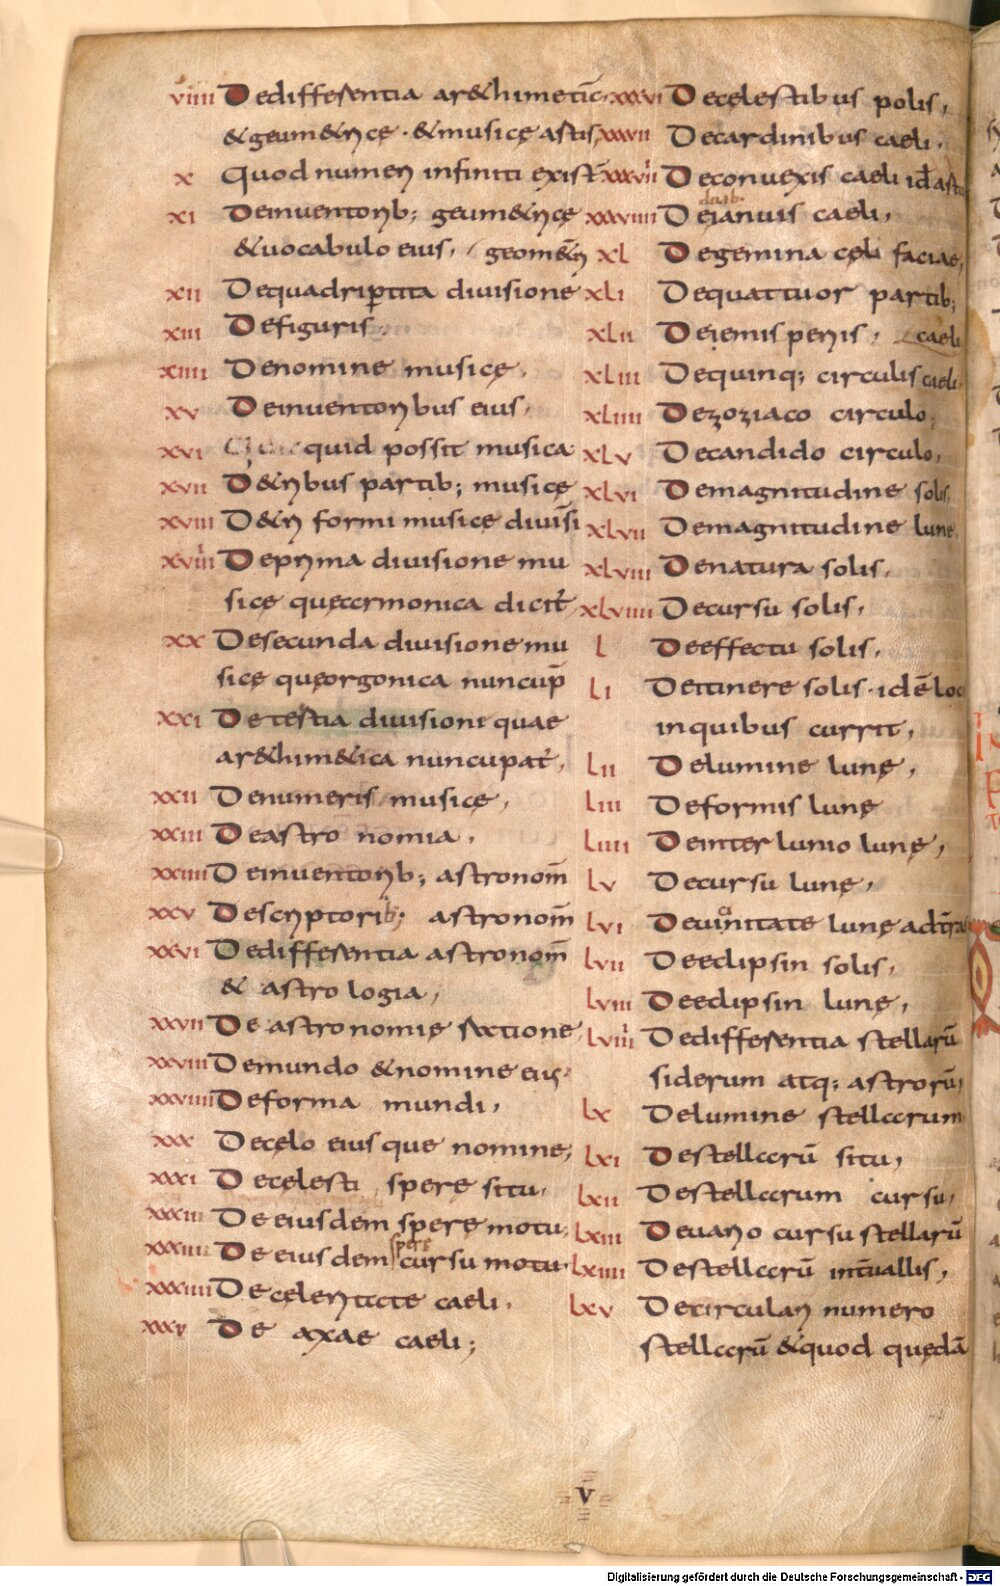 viiii Dedifferentia ar&himeticę
&geum&rıcę · &musicę astis
x Quod numeri infiniti exist̄
xi Deinuentorib; geum&ricę
&uocabulo eius, geom&ri
xii Dequadripertita diuisione
xiii Defiguris,
xiiii Denomine musicę,
xv Deinuentoribus eius,
xvi quid possit musica
xvii D&ribus partib; musicę
xviii D&ri formi musicę diuisi
xviiii Deprima diuisione mu
sicę quęarmonica dicit̄
xx Desecunda diuisione mu
sicę quęorgonica nuncup̄
xxi Detertia diuisione quae
ar&him&ica nuncupat̄,
xxii Denumeris musicę,
xxiii Deastro nomia,
xxiiii Deinuentorib; astronom̄
xxv Descriptorib; astronom̄
xxvi Dedifferentia astronom̄
& astro logia,
xxvii De astronomię ractione,
xxviii Demundo &nomine eius
xxviiii Deforma mundi,
xxx Decęlo eius que nomine,
xxxi Decęlesti sperę situ,
xxxii De eiusdem sperę motu,
xxxiii De eiusdem sperę cursu motu
xxxiiii Decelęritate caeli,
xxxv De axae caeli;
xxxvi Decęlestibus polis,
xxxvii Decardinibus caeli,
xxxviii Deconuexis caeli id ast
xxxviiii Deianuis caeli,
xl Degemina cęli faciae,
xli Dequattuor partib;
caeli
xlii Deiemisperiis,
xliii Dequinq; circulis caeli
xliiii Dezoziaco circulo,
xlv Decandido circulo,
xlvi Demagnitudine solis,
xlvii Demagnitudine lune
xlviii Denatura solis,
xlviiii Decursu solis,
l Deeffectu solis,
li Deitinere solis · idē loc
inquibus currit,
lii Delumine lunę,
liii Deformis lunę
liiii Deinter lunio lunę,
lv Decursu lunę,
lvi Deuicinitate lunę adt̄ra
lvii Deeclipsin solis,
lviii Deeclipsin lunę,
lviiii Dedifferentia stellarū
siderum atq; astrorū,
lx Delumine stellarum
lxi Destellarū situ,
lxii Destellarum cursu,
lxiii Deuario cursu stellarū
lxiiii Destellarū int̄uallis,
lxv Decirculari numero
stellarū &quod quędā
v
Digitalisierung gefördert durch die Deutsche Forschungsgemeinschaft - DFG